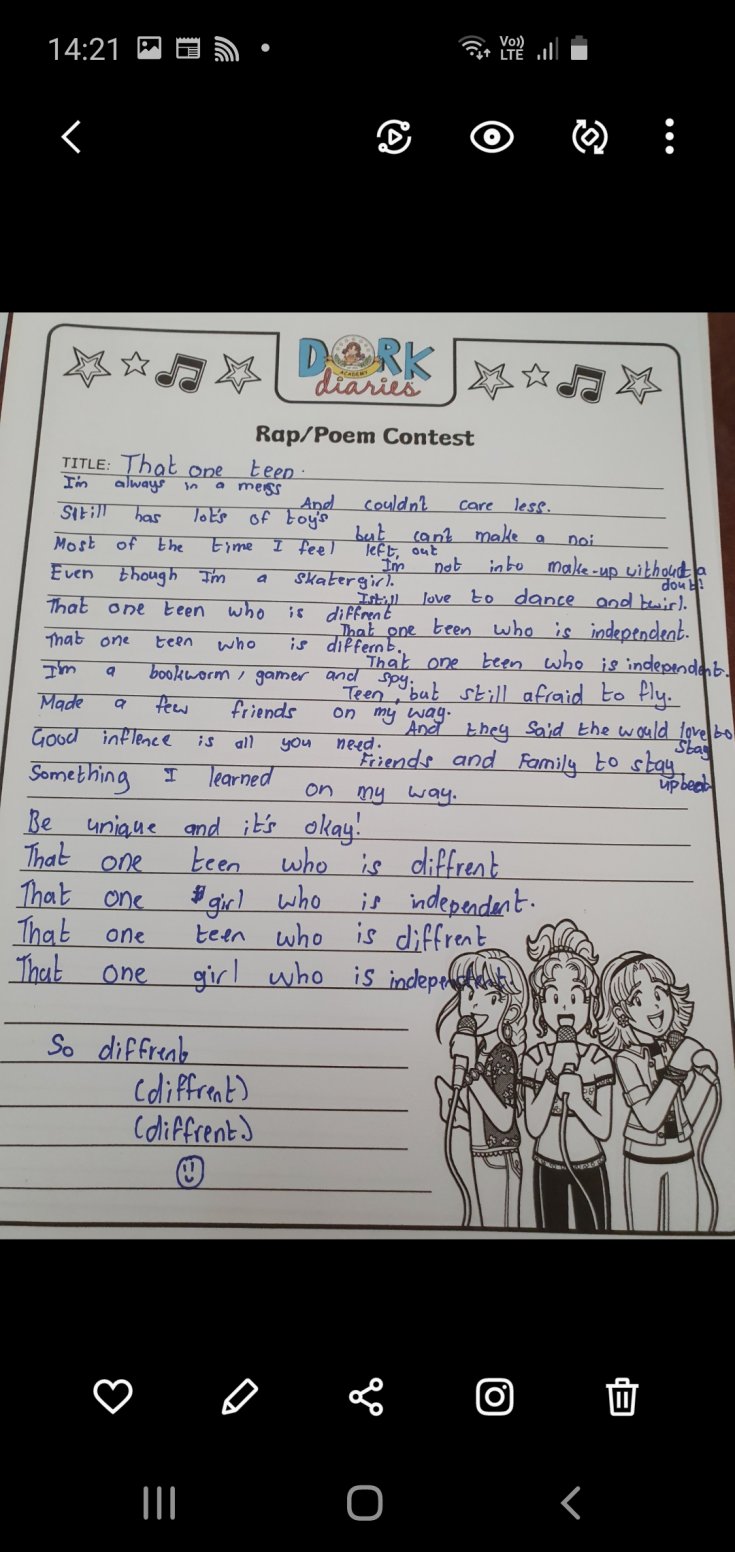 14:21
Vo))
LTE
DORK
ACADEMY
diaries
Rap/Poem Contest
TITLE: That one teen.
I'm always in a mess
And couldn't care less.
Sttill has lot's of toy's
but can't make a noi
Most of the time I feel left, out
I'm not into make-up without a
dout!
Even though I'm a skatergirl.
I still love to dance and twirl.
That one teen who is diffrent
That one teen who is independent.
That one teen who is differnt.
That one teen who is independent.
I'm a bookworm, gamer and spy.
Teen, but still afraid to fly.
Made a few friends on my way.
And they said the would love to
stay
Good inflence is all you need.
Friends and Family to stay
upbeat
Something I learned on my way.
Be unique and it's okay!
That one teen who is diffrent
That one girl who is independent.
That one teen who is diffrent
That one girl who is independent
So diffrent
(diffrent)
(diffrent.)